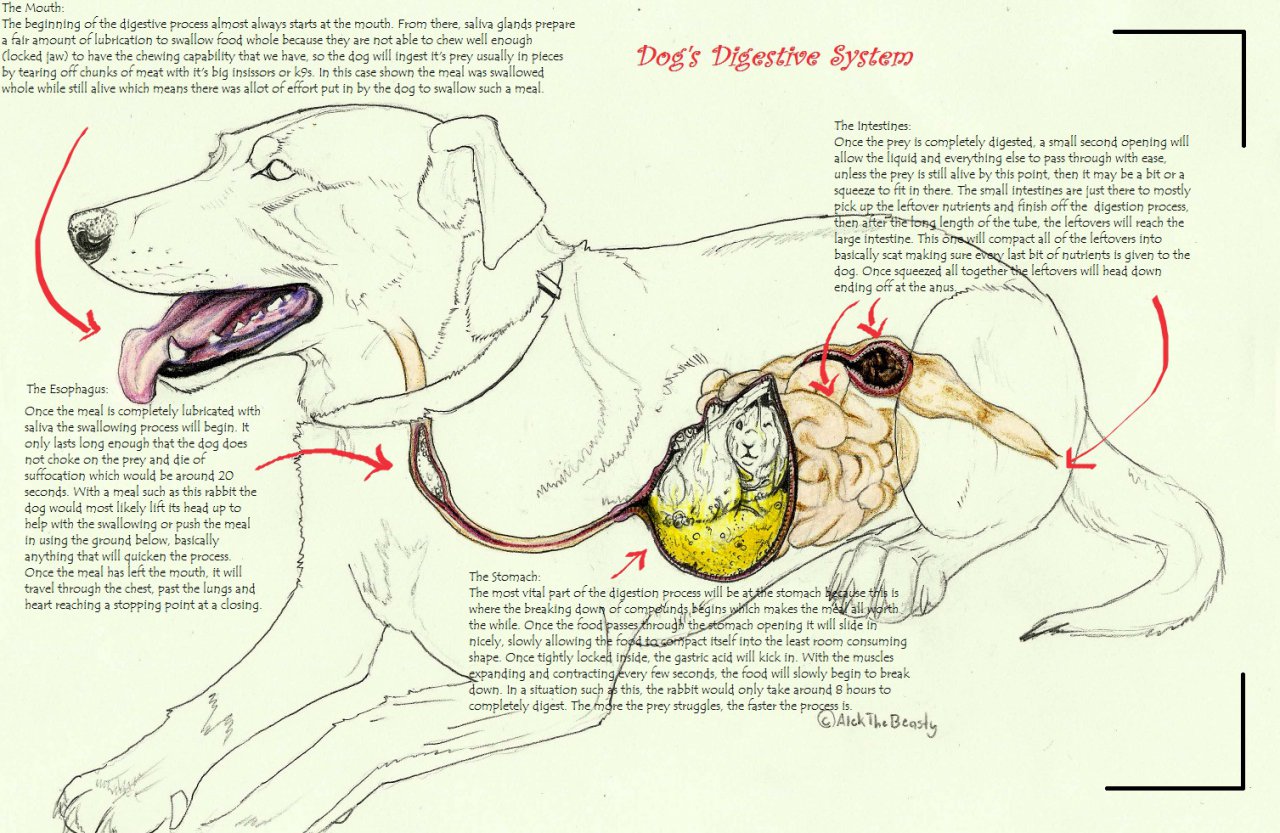 The Mouth:
The beginning of the digestive process almost always starts at the mouth. From there, saliva glands prepare
a fair amount of lubrication to swallow food whole because they are not able to chew well enough
(locked jaw) to have the chewing capability that we have, so the dog will ingest it's prey usually in pieces
by tearing off chunks of meat with it's big insissors or k9s. In this case shown the meal was swallowed
whole while still alive which means there was allot of effort put in by the dog to swallow such a meal.
Dog's Digestive System
The Intestines:
Once the prey is completely digested, a small second opening will
allow the liquid and everything else to pass through with ease,
unless the prey is still alive by this point, then it may be a bit or a
squeeze to fit in there. The small intestines are just there to mostly
pick up the leftover nutrients and finish off the digestion process,
then after the long length of the tube, the leftovers will reach the
large intestine. This one will compact all of the leftovers into
basically scat making sure every last bit of nutrients is given to the
dog. Once squeezed all together the leftovers will head down
ending off at the anus.
The Esophagus:
Once the meal is completely lubricated with
saliva the swallowing process will begin. It
only lasts long enough that the dog does
not choke on the prey and die of
suffocation which would be around 20
seconds. With a meal such as this rabbit the
dog would most likely lift its head up to
help with the swallowing or push the meal
in using the ground below, basically
anything that will quicken the process.
Once the meal has left the mouth, it will
travel through the chest, past the lungs and
heart reaching a stopping point at a closing.
The Stomach:
The most vital part of the digestion process will be at the stomach because this is
where the breaking down of compounds begins which makes the meal all worth
the while. Once the food passes through the stomach opening it will slide in
nicely, slowly allowing the food to compact itself into the least room consuming
shape. Once tightly locked inside, the gastric acid will kick in. With the muscles
expanding and contracting every few seconds, the food will slowly begin to break
down. In a situation such as this, the rabbit would only take around 8 hours to
completely digest. The more the prey struggles, the faster the process is.
©AlckTheBeasty